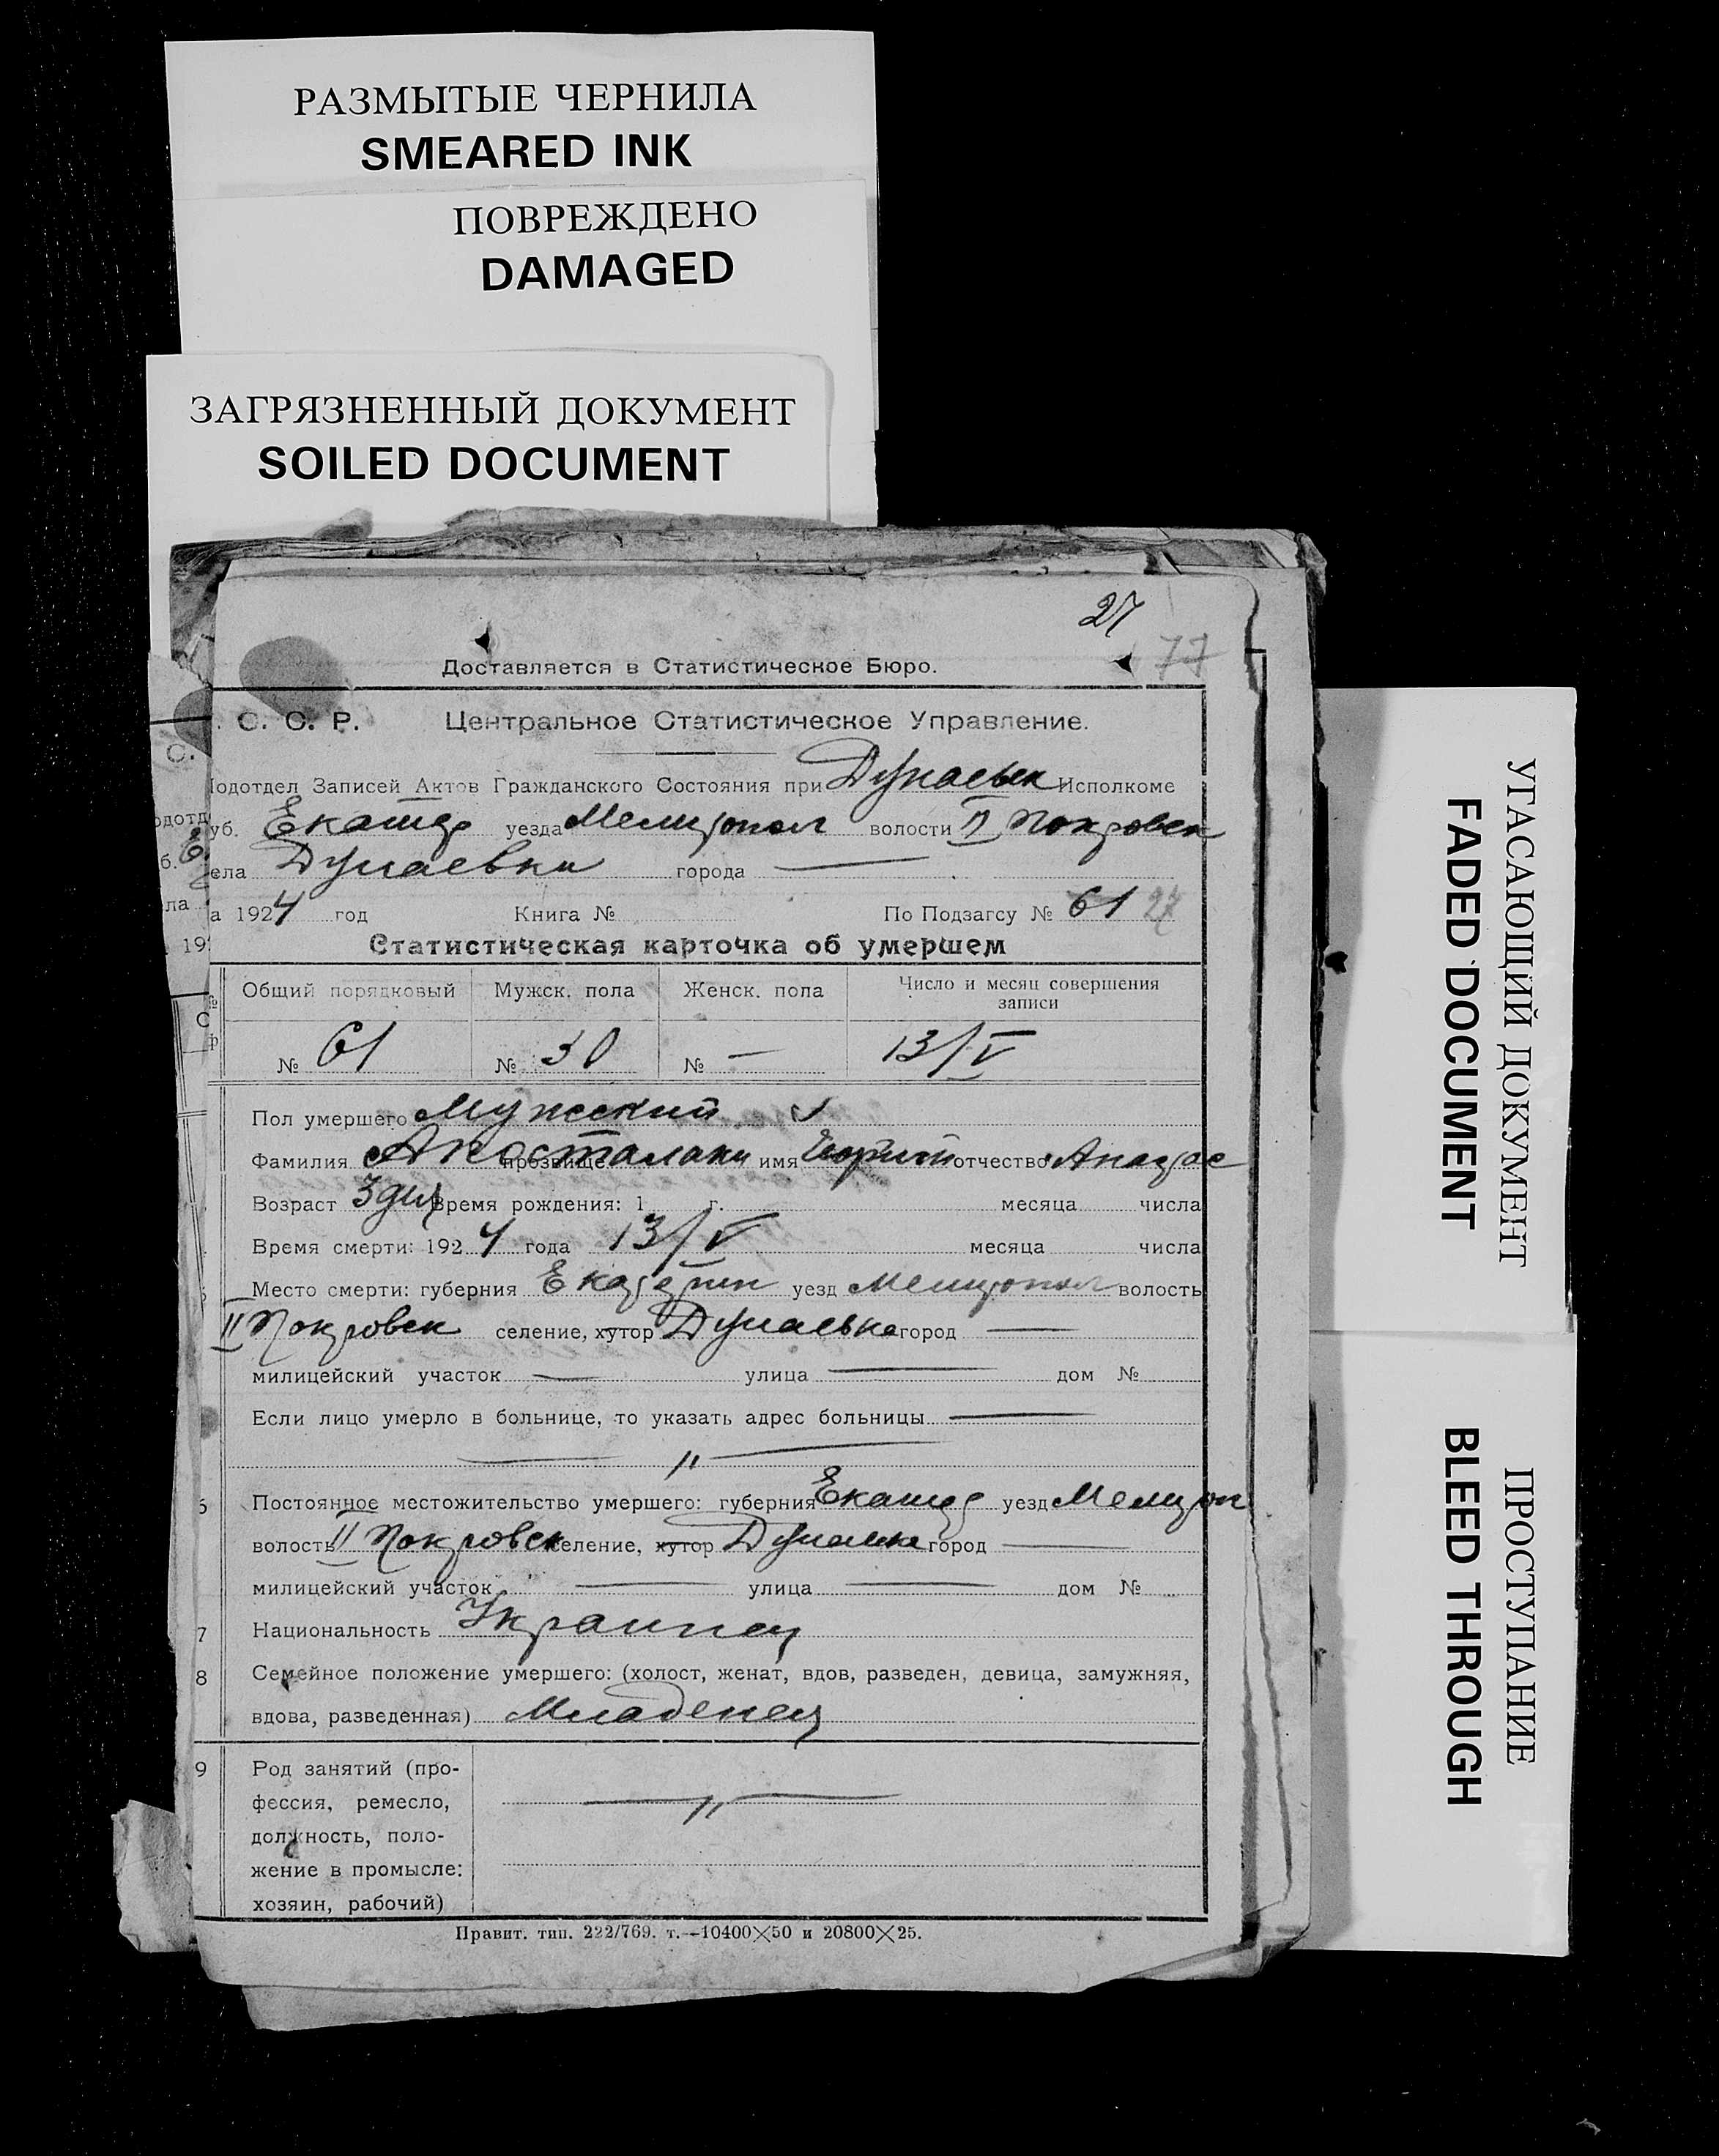 РАЗМЫТЫЕ ЧЕРНИЛА
SMEARED INK
ПОВРЕЖДЕНО
DAMAGED
ЗАГРЯЗНЕННЫЙ ДОКУМЕНТ
SOILED DOCUMENT
27
77
Доставляется в Статистическое Бюро.
. С. С. Р. Центральное Статистическое Управление.
Подотдел Записей Актов Гражданского Состояния при Дунаевск Исполкоме
уб. уезда Мелитопол волости II Покровск
ела Дунаевки города —
а 1924 год Книга № По Подзагсу № 61 27
Статистическая карточка об умершем
Общий порядковый Мужск. пола Женск. пола Число и месяц совершения записи
№ 61 № 30 № — 13/V
Пол умершего Мужской
Фамилия Апосталаки прозвище имя отчество
Возраст 3 дня Время рождения: 1 г. месяца числа
Время смерти: 1924 года 13/V месяца числа
Место смерти: губерния Екатерин уезд Мелитопол волость
II Покровск селение, хутор Дунаевка город —
милицейский участок — улица — дом №
Если лицо умерло в больнице, то указать адрес больницы —
— " —
6 Постоянное местожительство умершего: губерния уезд Мелитоп
волость II Покровск селение, хутор Дунаевка город —
милицейский участок — улица — дом №
7 Национальность Украинец
8 Семейное положение умершего: (холост, женат, вдов, разведен, девица, замужняя,
вдова, разведенная) Младенец
9 Род занятий (про-
фессия, ремесло, — " —
должность, поло-
жение в промысле:
хозяин, рабочий)
Правит. тип. 222/769. т.—10400×50 и 20800×25.
УГАСАЮЩИЙ ДОКУМЕНТ
FADED DOCUMENT
ПРОСТУПАНИЕ
BLEED THROUGH